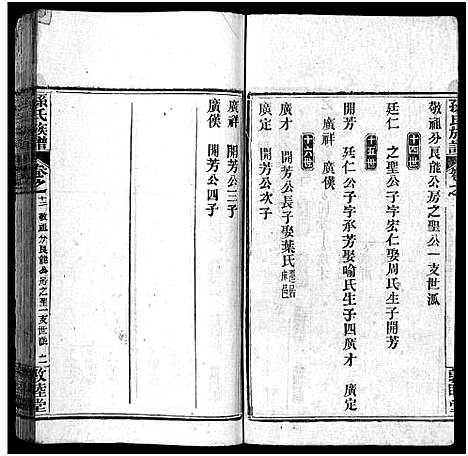 孫氏族譜
敬祖分良能公房之聖公一支世派
十四世
廷仁 之聖公子字宏仁娶周氏生子開芳
十五世
開芳 廷仁公子字承芳娶喻氏生子四廣才 廣定
廣祥 廣僕
十六世
廣才 開芳公長子娶葉氏遷居
廣定 開芳公次子
廣祥 開芳公三子
廣僕 開芳公四子
孫氏族譜
卷之十二 敬祖分良能公房之聖一支世派 二 敦睦堂